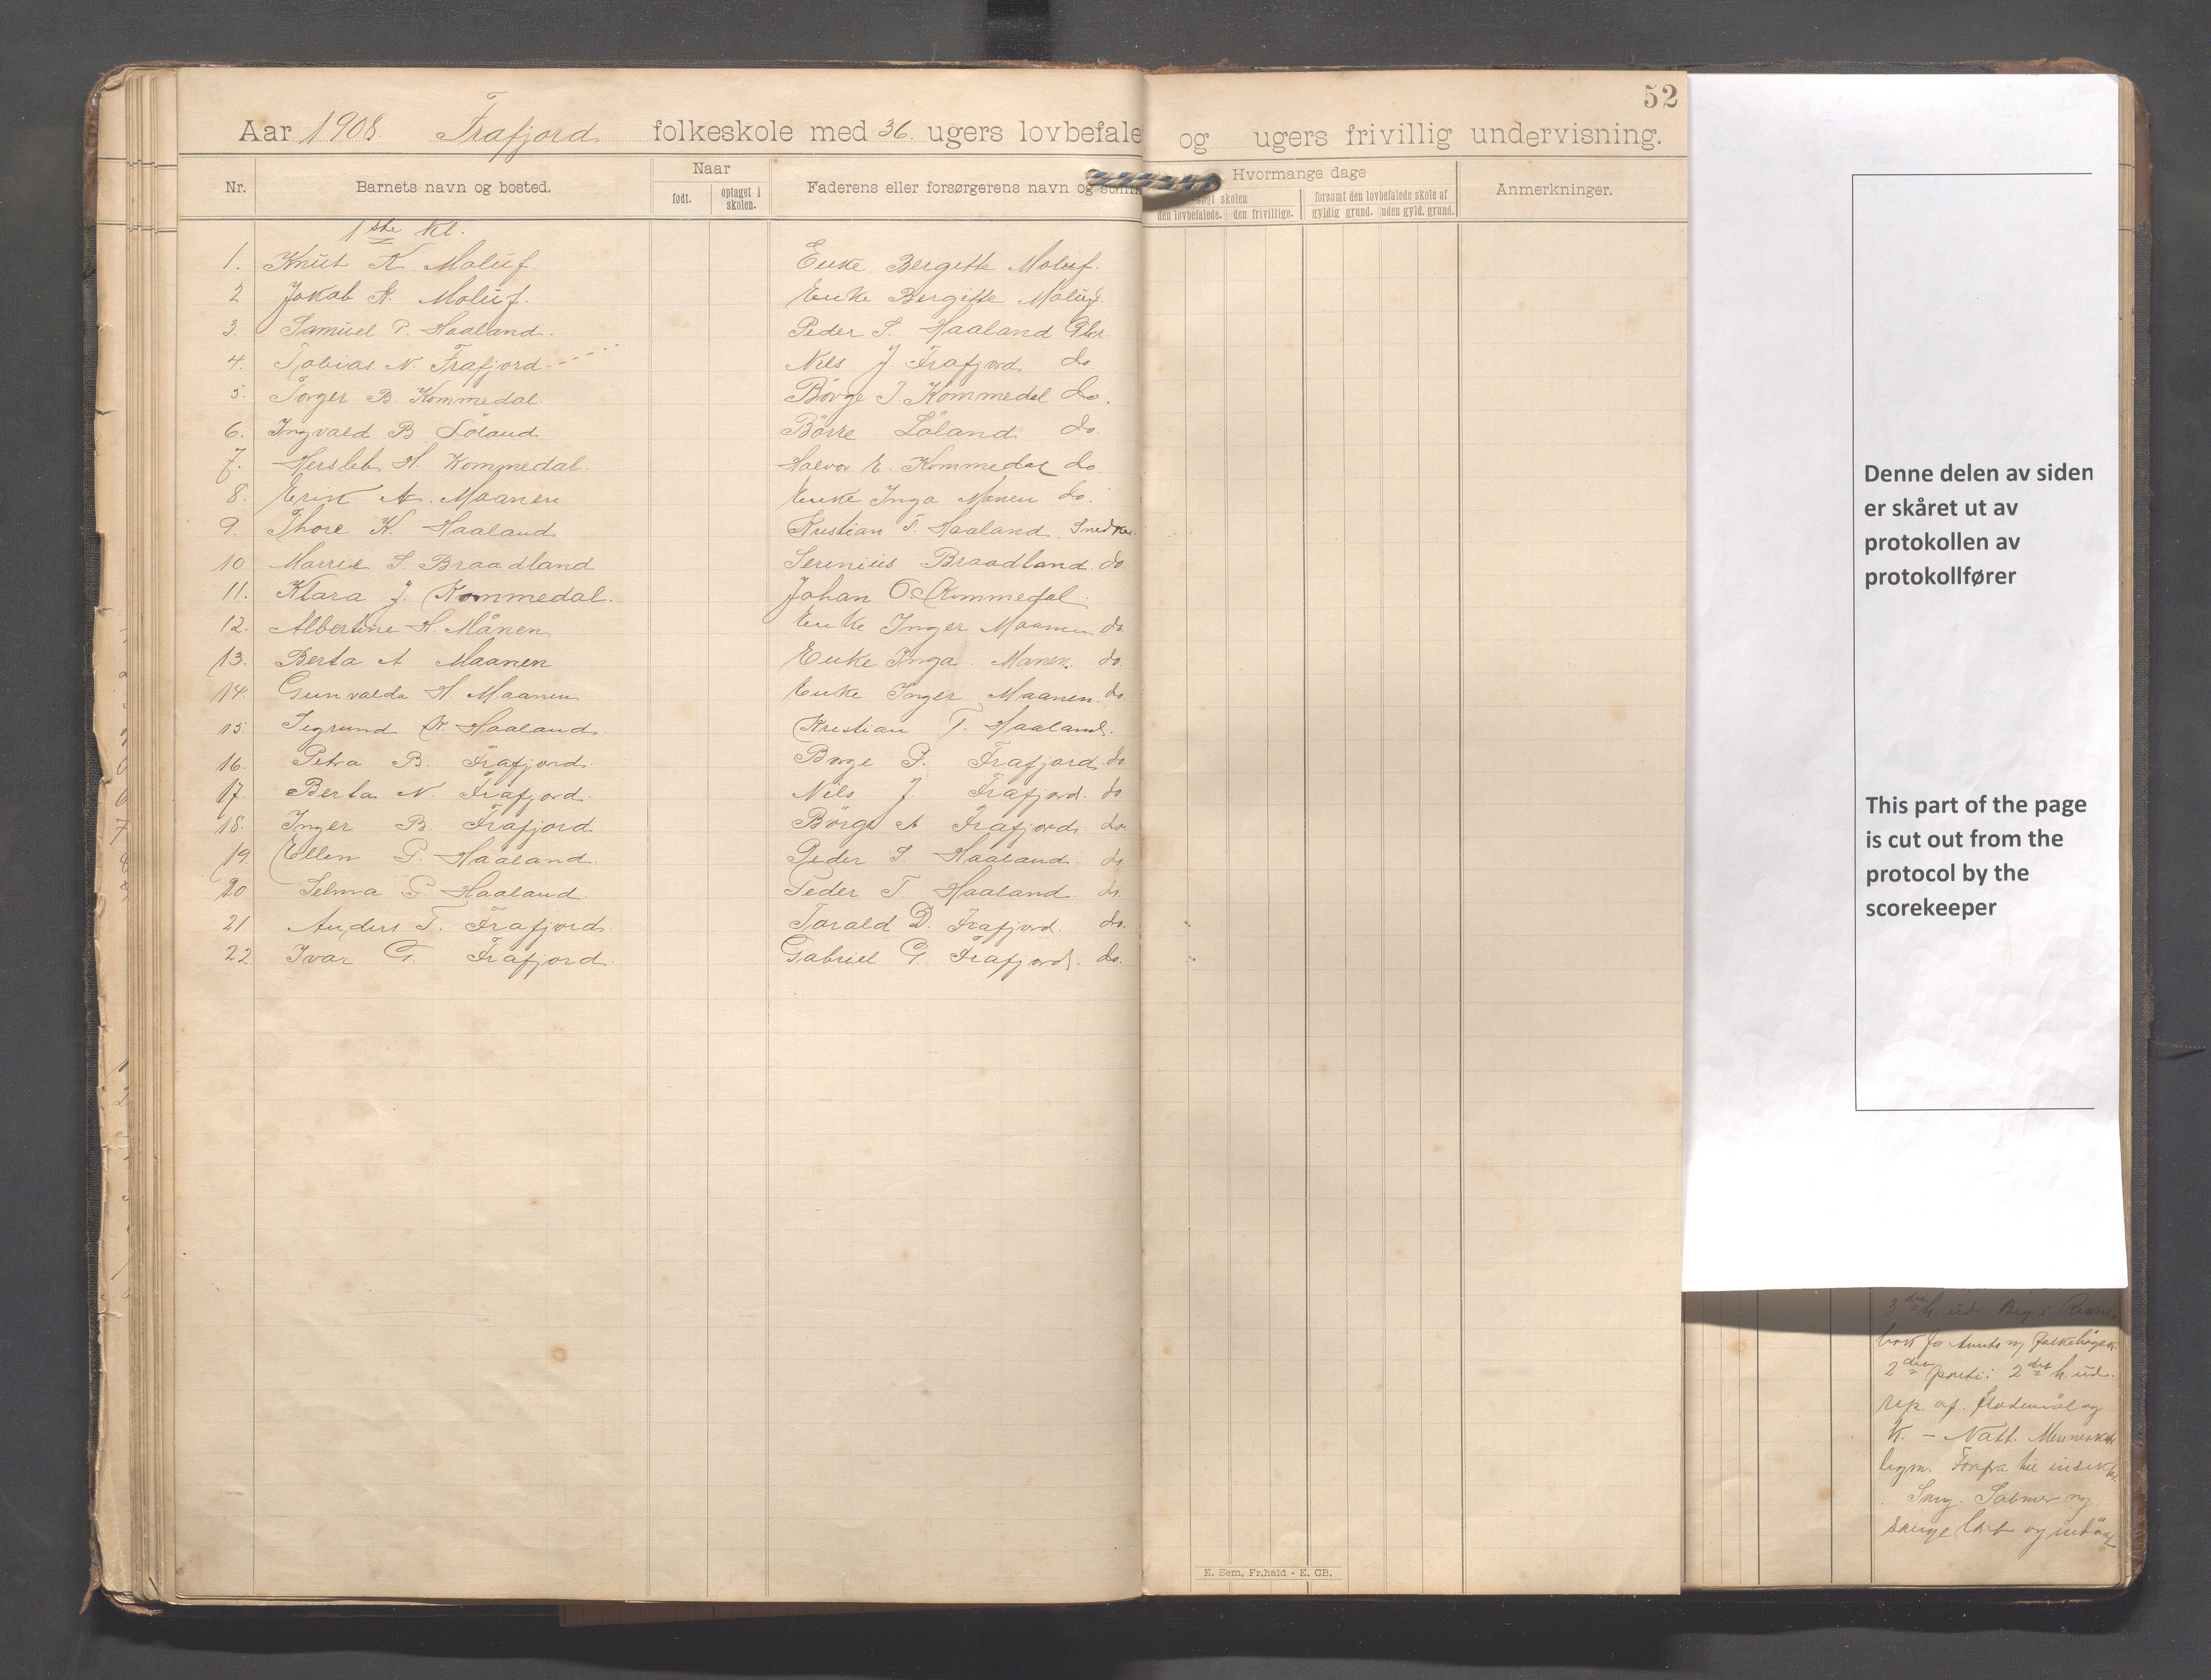 52
Aar 1908. Frafjord folkeskole med 36 ugers lovbefale og ugers frivillig undervisning.
Nr. Barnets navn og bosted. Naar født. optaget i skolen. Faderens eller forsørgerens navn og Hvormange dage søgt skolen den lovbefalede. den frivillige. forsømt den lovbefalede skole af gyldig grund. uden gyld. grund. Anmerkninger.
1ste Kl.
1. Knut K. Maluf. Enke Bergitte Maluf.
2 Jakob K. Maluf. Enke Bergitte Maluf.
3. Samuel P. Haaland. Peder S. Haaland Gbr.
4. Tobias N. Frafjord Nils J. Frafjord do.
5. Torger B. Kommedal. Børge T. Kommedal do.
6. Ingvald B Löland Börre Löland do.
7. Hersleb H. Kommedal. Halvor E. Kommedal do.
8. Erik A. Maanen Enke Inga Manen do.
9. Thore K. Haaland Kristian T. Haaland. Snedker
10 Marrie S. Braadland Serenius Braadland. do
11. Klara J. Kommedal. Johan O. Kommedal
12. Albertine H. Månen Enke Inger Maanen do.
13. Berta A Maanen Enke Inga Manen. do.
14. Gunvalda H. Maanen Enke Inger Maanen. do.
15. Segrund K. Haaland. Kristian T. Haaland.
16. Petra B. Frafjord. Børge P. Frafjord. do.
17. Berta N. Frafjord. Nils J Frafjord. do.
18. Inger B Frafjord. Børge A Frafjord do.
19. Ellen P. Haaland. Peder S. Haaland. do
20 Selma P. Haaland. Peder T. Haaland. do.
21. Anders T. Frafjord. Torald D. Frafjord. do.
22. Ivar G. Frafjord. Gabriel G. Frafjord. do.
E. Sem, Fr.hald - E. CB.
Denne delen av siden
er skåret ut av
protokollen av
protokollfører
This part of the page
is cut out from the
protocol by the
scorekeeper
3die h. ud Beg i
bok for Amts og folkehøgsk.
2det parti: 2det h. ud.
rep. af
K. - Natt. Menneske
legm. Forfra til insekt
Sang. Salmer og
sange lært og indöv